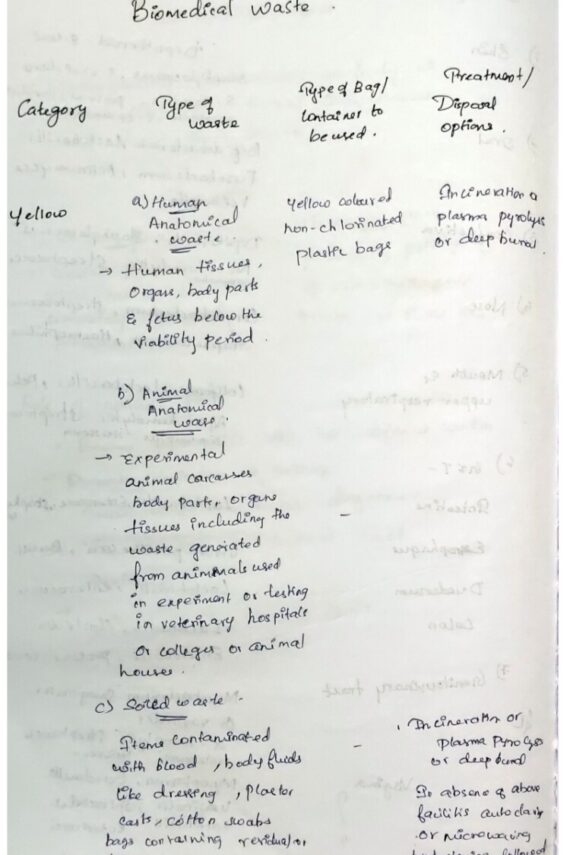 Biomedical waste.
Category
Type of
waste
Type of Bag/
Container to
be used.
Treatment/
Disposal
options.
Yellow
a) Human
Anatomical
waste
→ Human tissues,
Organs, body parts
& fetus below the
viability period.
Yellow coloured
non-chlorinated
plastic bags
Incineration o
plasma pyrolysis
or deep burial
b) Animal
Anatomical
waste.
→ Experimental
animal carcasses
body parts, organs
tissues including the
waste generated
from animals used
in experiment or testing
in veterinary hospitals
or colleges or animal
houses.
-
c) Soiled waste -
Items contaminated
with blood, body fluids
like dressing, plaster
casts, cotton swabs
bags containing residual or
-
Incineration or
plasma pyrolysis
or deep burial
In absence of above
facilitis autoclavin
or microwaving
followed